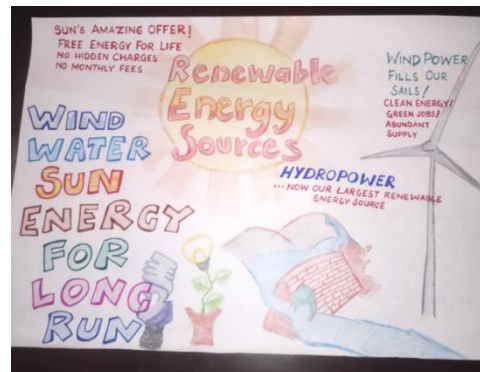 SUN'S AMAZING OFFER!
FREE ENERGY FOR LIFE
NO HIDDEN CHARGES
NO MONTHLY FEES
Renewable
Energy
Sources
WIND POWER
FILLS OUR
SAILS!
CLEAN ENERGY!
GREEN JOBS!
ABUNDANT
SUPPLY
WIND
WATER
SUN
ENERGY
FOR
LONG
RUN
HYDROPOWER
...NOW OUR LARGEST RENEWABLE
ENERGY SOURCE